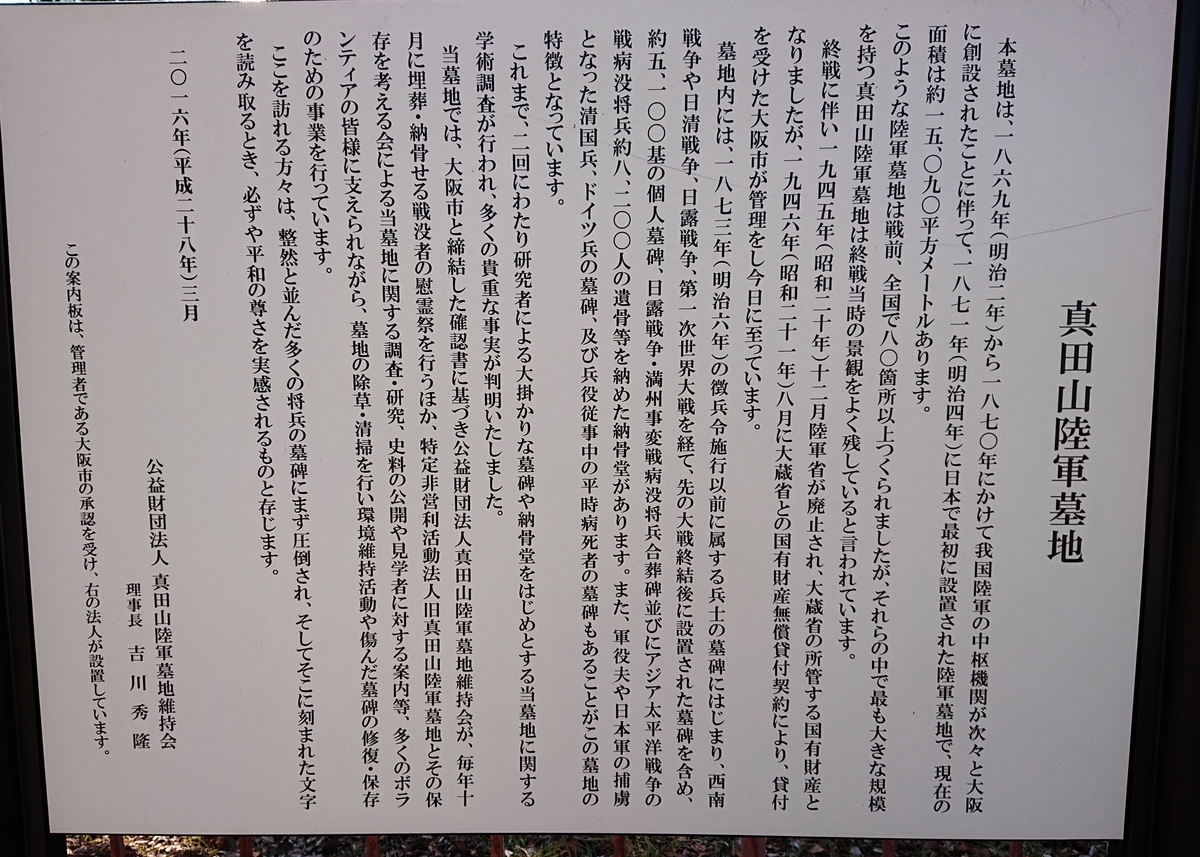 真田山陸軍墓地
本墓地は、一八六九年(明治二年)から一八七〇年にかけて我国陸軍の中枢機関が次々と大阪
に創設されたことに伴って、一八七一年(明治四年)に日本で最初に設置された陸軍墓地で、現在の
面積は約一五、〇九〇平方メートルあります。
このような陸軍墓地は戦前、全国で八〇箇所以上つくられましたが、それらの中で最も大きな規模
を持つ真田山陸軍墓地は終戦当時の景観をよく残していると言われています。
終戦に伴い一九四五年(昭和二十年)十二月陸軍省が廃止され、大蔵省の所管する国有財産と
なりましたが、一九四六年(昭和二十一年)八月に大蔵省との国有財産無償貸付契約により、貸付
を受けた大阪市が管理をし今日に至っています。
墓地内には、一八七三年(明治六年)の徴兵令施行以前に属する兵士の墓碑にはじまり、西南
戦争や日清戦争、日露戦争、第一次世界大戦を経て、先の大戦終結後に設置された墓碑を含め、
約五、一〇〇基の個人墓碑、日露戦争・満州事変戦病没将兵合葬碑並びにアジア太平洋戦争の
戦病没将兵約八、二〇〇人の遺骨等を納めた納骨堂があります。また、軍役夫や日本軍の捕虜
となった清国兵、ドイツ兵の墓碑、及び兵役従事中の平時病死者の墓碑もあることがこの墓地の
特徴となっています。
これまで、二回にわたり研究者による大掛かりな墓碑や納骨堂をはじめとする当墓地に関する
学術調査が行われ、多くの貴重な事実が判明いたしました。
当墓地では、大阪市と締結した確認書に基づき公益財団法人真田山陸軍墓地維持会が、毎年十
月に埋葬・納骨せる戦没者の慰霊祭を行うほか、特定非営利活動法人旧真田山陸軍墓地とその保
存を考える会による当墓地に関する調査・研究、史料の公開や見学者に対する案内等、多くのボラ
ンティアの皆様に支えられながら、墓地の除草・清掃を行い環境維持活動や傷んだ墓碑の修復・保存
のための事業を行っています。
ここを訪れる方々は、整然と並んだ多くの将兵の墓碑にまず圧倒され、そしてそこに刻まれた文字
を読み取るとき、必ずや平和の尊さを実感されるものと存じます。
二〇一六年(平成二十八年)三月
公益財団法人 真田山陸軍墓地維持会
理事長 吉川秀隆
この案内板は、管理者である大阪市の承認を受け、右の法人が設置しています。